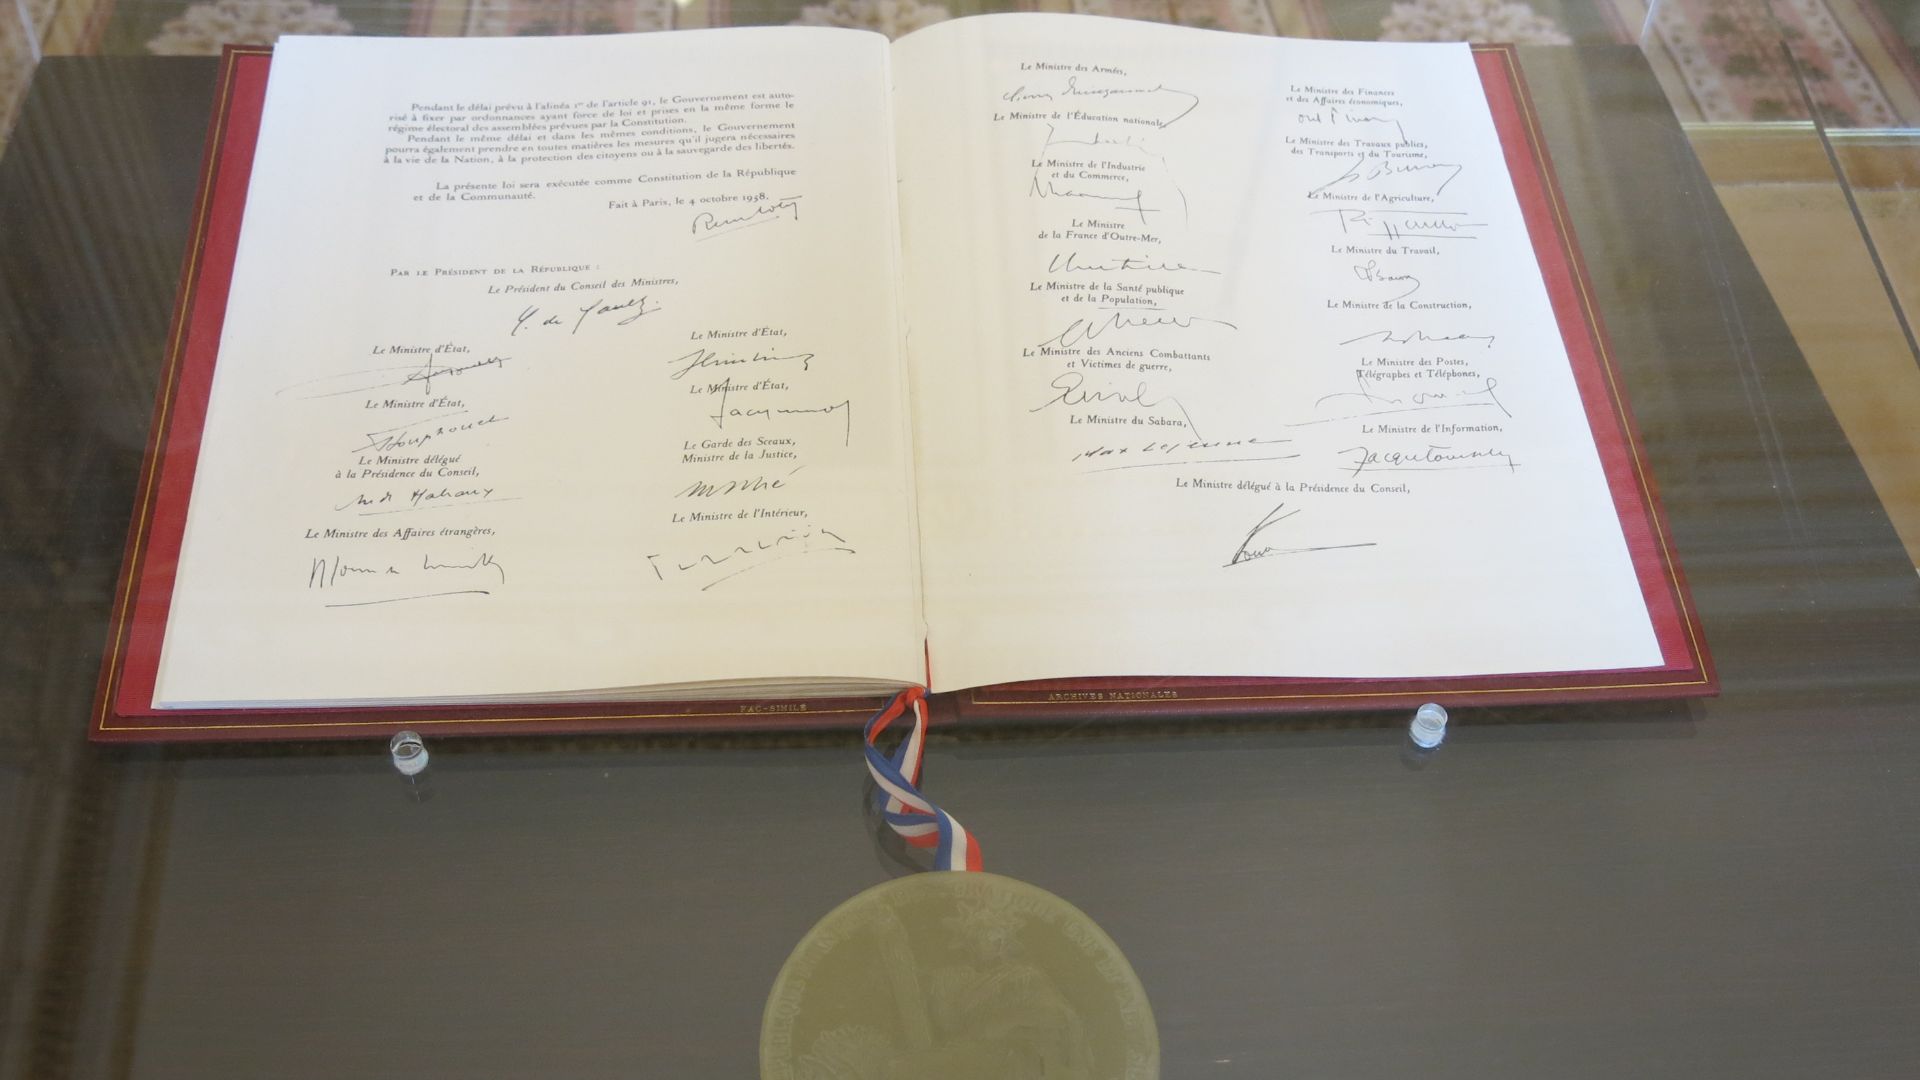 Pendant le délai prévu à l'alinéa 1er de l'article 91, le Gouvernement est auto-
risé à fixer par ordonnances ayant force de loi et prises en la même forme le
régime électoral des assemblées prévues par la Constitution.
Pendant le même délai et dans les mêmes conditions, le Gouvernement
pourra également prendre en toutes matières les mesures qu'il jugera nécessaires
à la vie de la Nation, à la protection des citoyens ou à la sauvegarde des libertés.
La présente loi sera exécutée comme Constitution de la République
et de la Communauté.
Fait à Paris, le 4 octobre 1958.
PAR LE PRÉSIDENT DE LA RÉPUBLIQUE :
Le Président du Conseil des Ministres,
Le Ministre d'État,
Le Ministre d'État,
Houphouet
Le Ministre délégué
à la Présidence du Conseil,
Le Ministre des Affaires étrangères,
Le Ministre d'État,
Le Ministre d'État,
Jacquinot
Le Garde des Sceaux,
Ministre de la Justice,
Le Ministre de l'Intérieur,
Le Ministre des Armées,
Le Ministre de l'Éducation nationale,
Le Ministre de l'Industrie
et du Commerce,
Le Ministre
de la France d'Outre-Mer,
Le Ministre de la Santé publique
et de la Population,
Le Ministre des Anciens Combattants
et Victimes de guerre,
Le Ministre du Sahara,
Max Lejeune
Le Ministre des Finances
et des Affaires économiques,
Le Ministre des Travaux publics,
des Transports et du Tourisme,
Le Ministre de l'Agriculture,
Le Ministre du Travail,
Le Ministre de la Construction,
Le Ministre des Postes,
Télégraphes et Téléphones,
Le Ministre de l'Information,
Le Ministre délégué à la Présidence du Conseil,
FAC-SIMILÉ
ARCHIVES NATIONALES